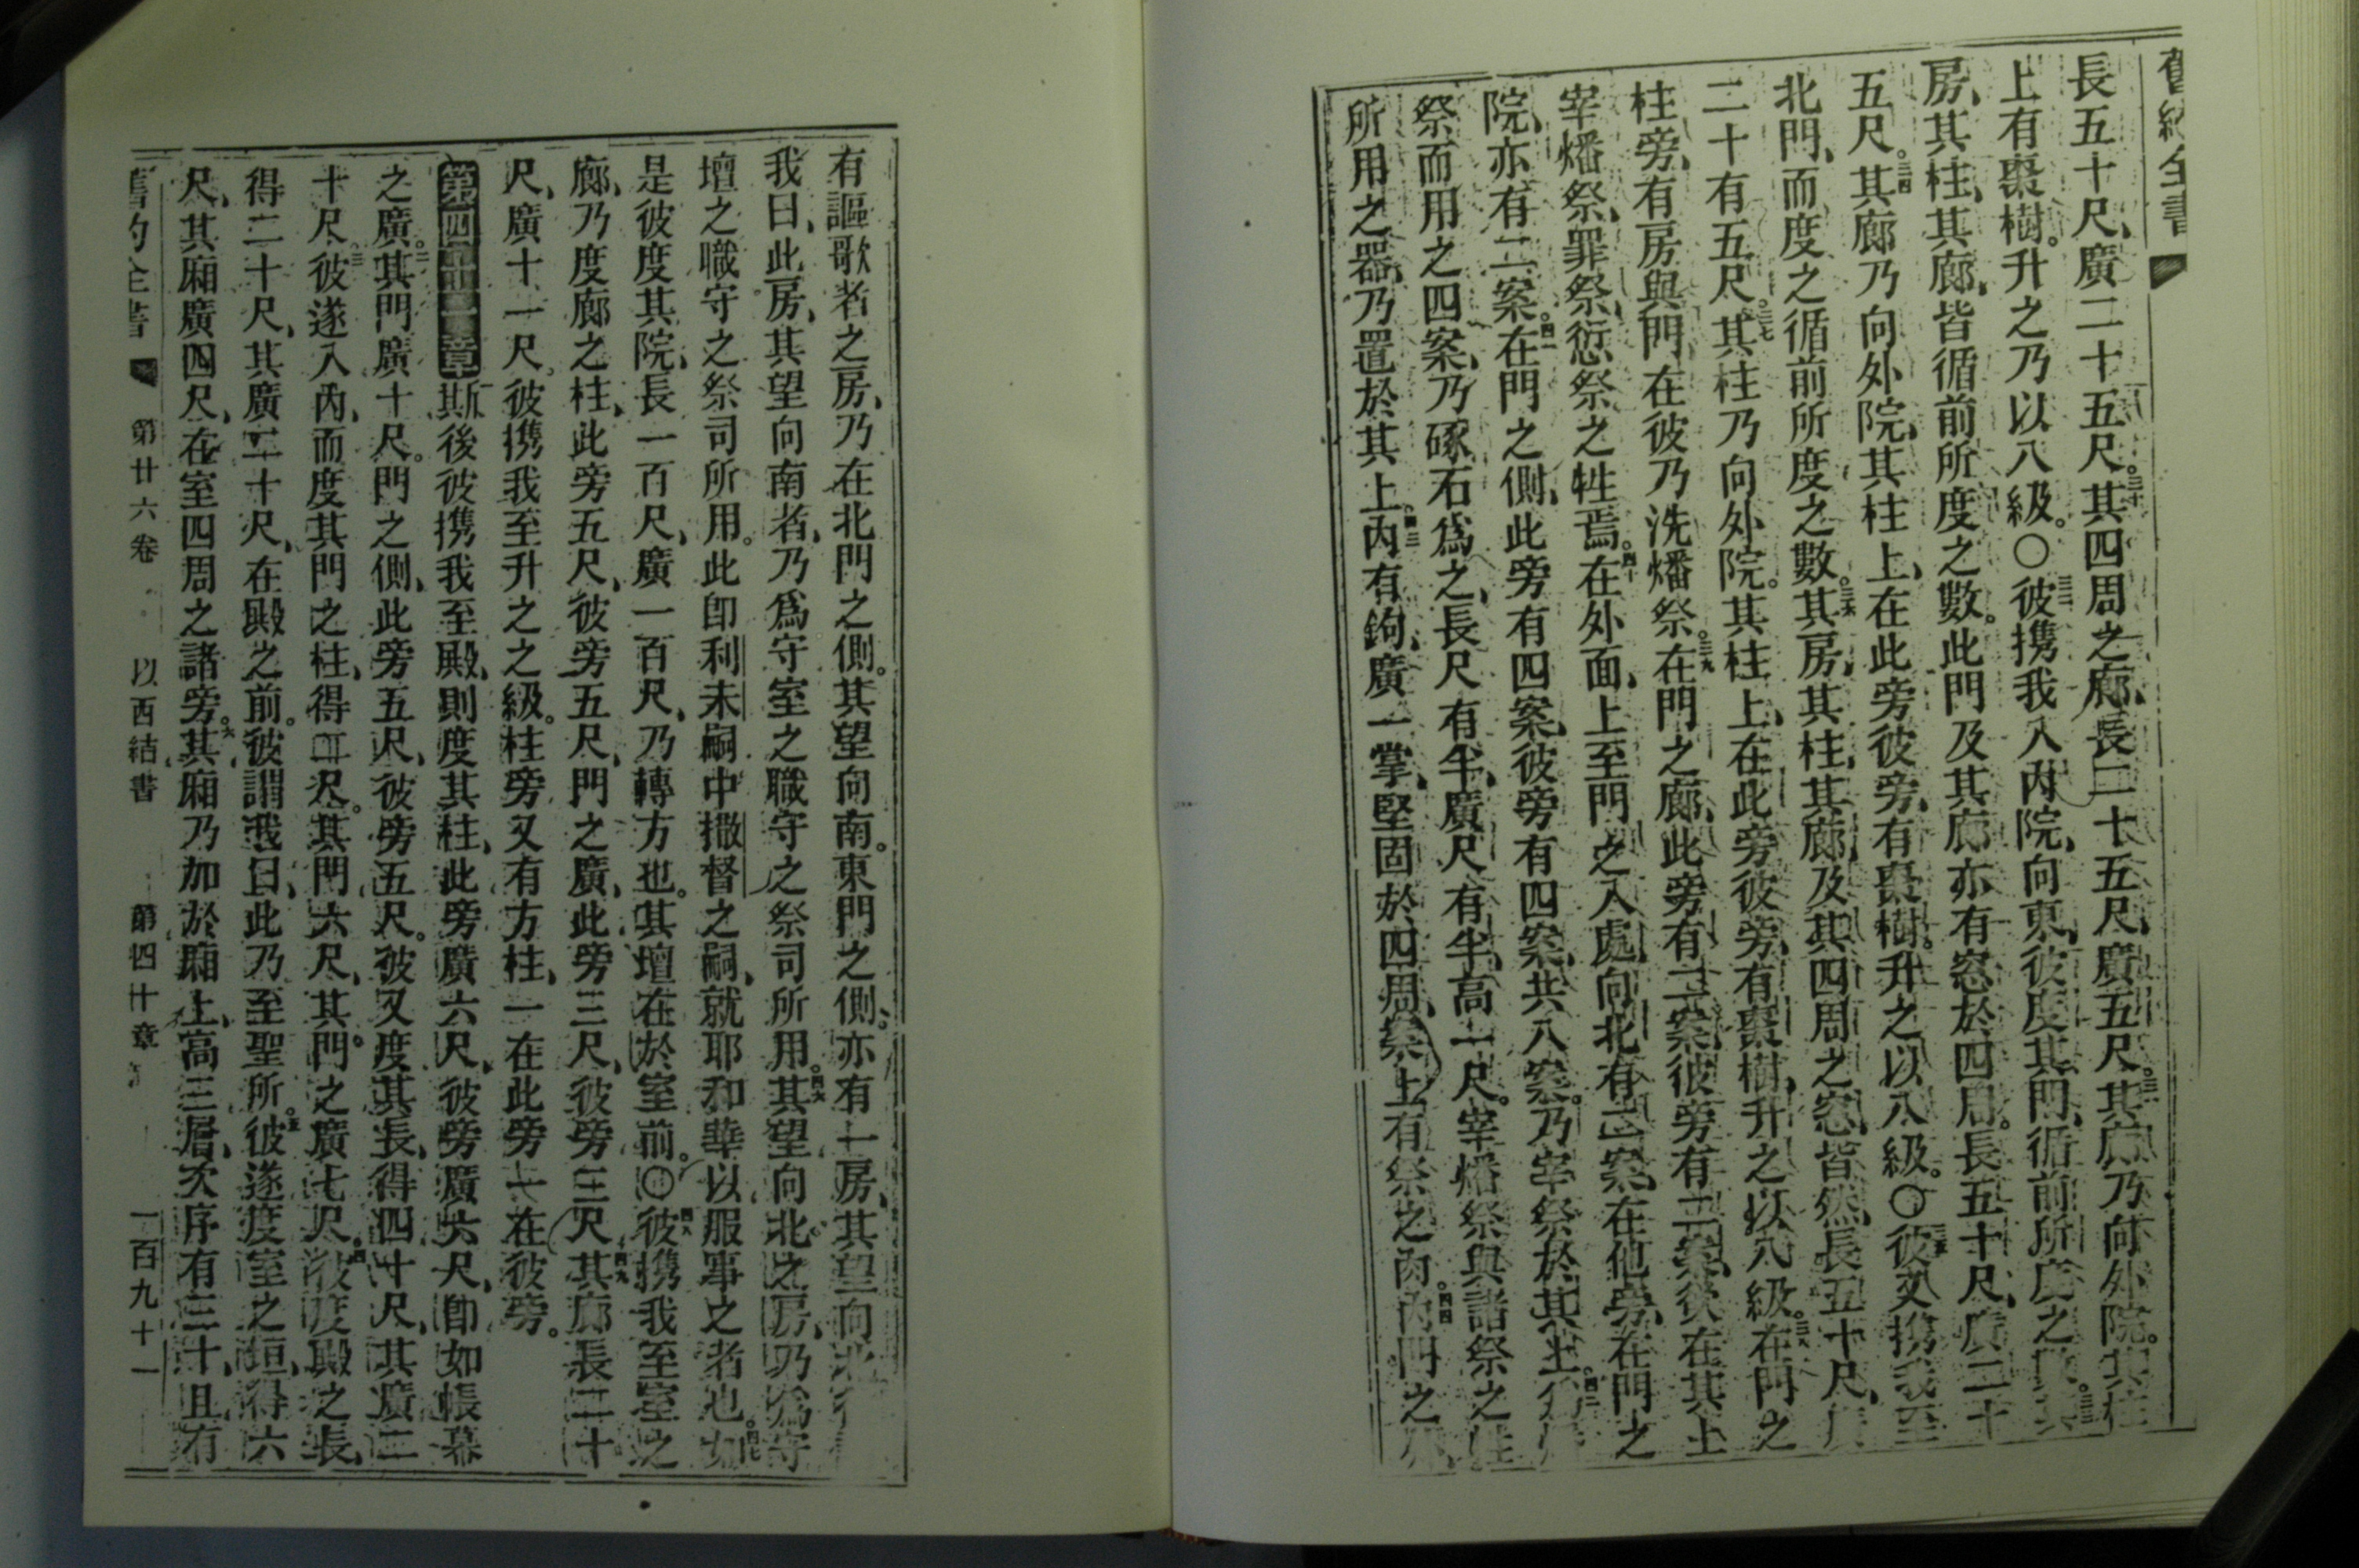 舊約全書
長五十尺、廣二十五尺。三十其四周之廊、長二十五尺、廣五尺。三一其廊乃向外院。其柱
上有棗樹。升之乃以八級。〇三二彼携我入內院、向東、彼度其門、循前所度之數。三三其
房、其柱、其廊、皆循前所度之數。此門及其廊亦有窓於四周。長五十尺、廣二十
五尺。三四其廊乃向外院、其柱上、在此旁彼旁、有棗樹。升之以八級。〇三五彼又携我至
北門、而度之循前所度之數。三六其房、其柱、其廊、及其四周之窓、皆然、長五十尺、廣
二十有五尺。三七其柱乃向外院。其柱上、在此旁彼旁、有棗樹、升之以八級。三八在門之
柱旁、有房與門、在彼乃洗燔祭。三九在門之廊、此旁有二案、彼旁有二案、欲在其上
宰燔祭、罪祭、愆祭之牲焉。四十在外面、上至門之入處、向北、有二案、在他旁、在門之
院、亦有二案。四一在門之側、此旁有四案、彼旁有四案、共八案。乃宰祭於其上。四二
祭而用之四案、乃琢石爲之、長尺有半、廣尺有半、高一尺。宰燔祭與諸祭之牲
所用之器、乃置於其上。四三內有鉤、廣一掌、堅固於四周、案上有祭之肉。四四內門之外、
有謳歌者之房、乃在北門之側。其望向南。東門之側、亦有一房、其望向北。
我曰、此房、其望向南者、乃爲守室之職守之祭司所用。四六其望向北之房、乃爲守
壇之職守之祭司所用。此卽利未嗣中撒督之嗣、就耶和華以服事之者也。四七如
是彼度其院、長一百尺、廣一百尺、乃轉方也。其壇在於室前。〇四八彼携我至室之
廊、乃度廊之柱、此旁五尺、彼旁五尺、門之廣、此旁三尺、彼旁三尺。四九其廊長二十
尺、廣十一尺。彼携我至升之之級。柱旁又有方柱、一在此旁、一在彼旁。
第四十一章斯後彼携我至殿、則度其柱、此旁廣六尺、彼旁廣六尺、卽如帳幕
之廣。二其門廣十尺。門之側、此旁五尺、彼旁五尺。彼又度其長、得四十尺、其廣二
十尺。三彼遂入內、而度其門之柱、得二尺。其門六尺、其門之廣七尺。四彼度殿之長、
得二十尺、其廣二十尺、在殿之前。彼謂我曰、此乃至聖所。五彼遂度室之垣、得六
尺、其廂廣四尺、在室四周之諸旁。六其廂乃加於廂上、高三層、次序有三十、且有
舊約全書 第廿六卷 以西結書 第四十章 一百九十一